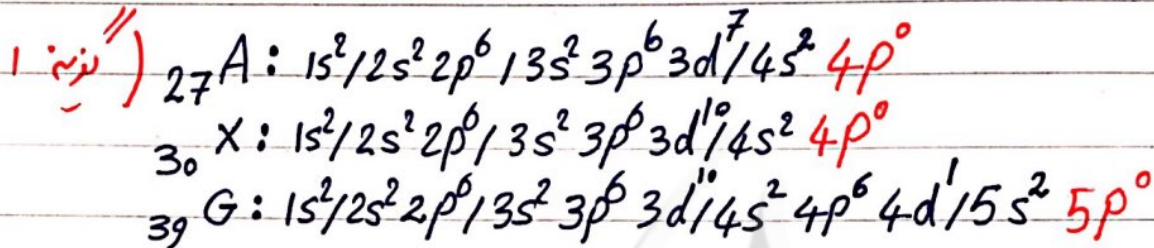 گزینه 1) ₂₇A: 1s²/2s² 2p⁶/3s² 3p⁶ 3d⁷/4s² 4p⁰
₃₀X: 1s²/2s² 2p⁶/3s² 3p⁶ 3d¹⁰/4s² 4p⁰
₃₉G: 1s²/2s² 2p⁶/3s² 3p⁶ 3d¹⁰/4s² 4p⁶ 4d¹/5s² 5p⁰